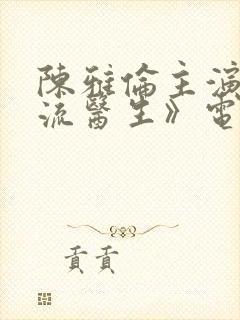 陳雅倫主演
流醫生》電
貢貢